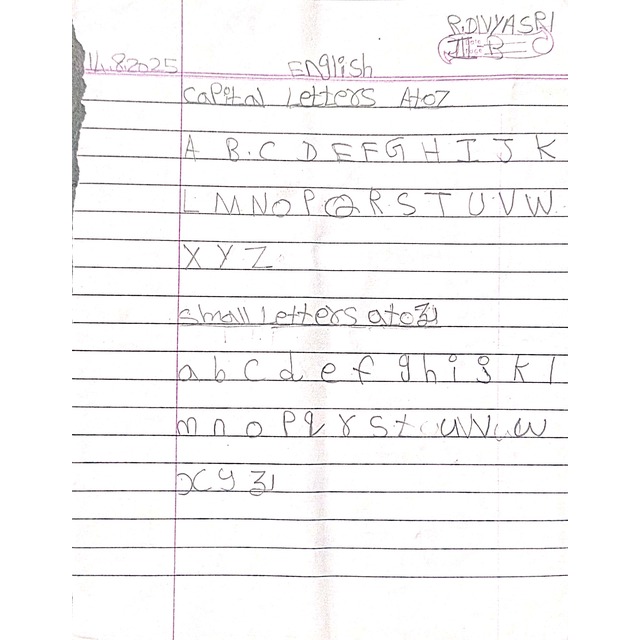 R.DIVYASRI
II - B
11.8.2025 English
Capital Letters A to Z
A B.C D E F G H I J K
L M N O P Q R S T U V W
X Y Z
small letters a to z
a b c d e f g h i j k l
m n o p q r s t u v w
x y z